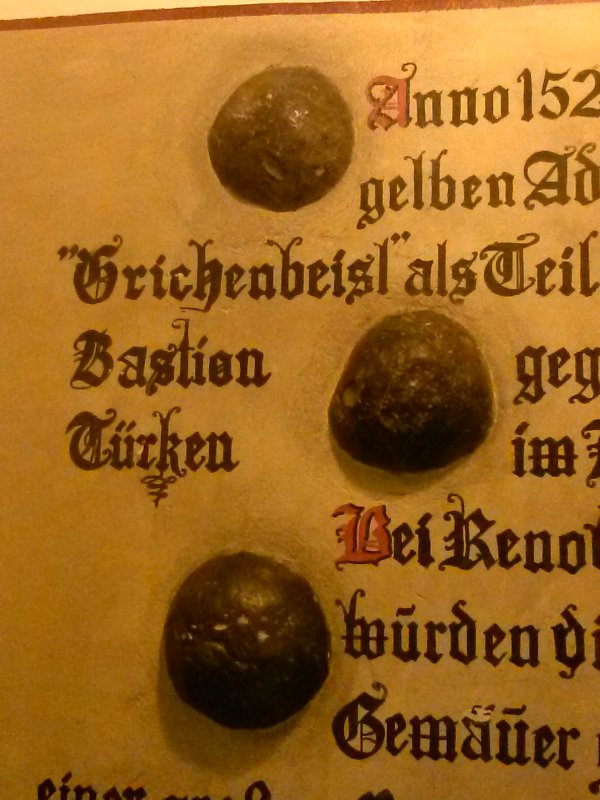 Anno 152
gelben Ad
"Grichenbeisl" als Teil
Bastion geg
Türken im
Bei Renov
würden di
Gemäüer
einer